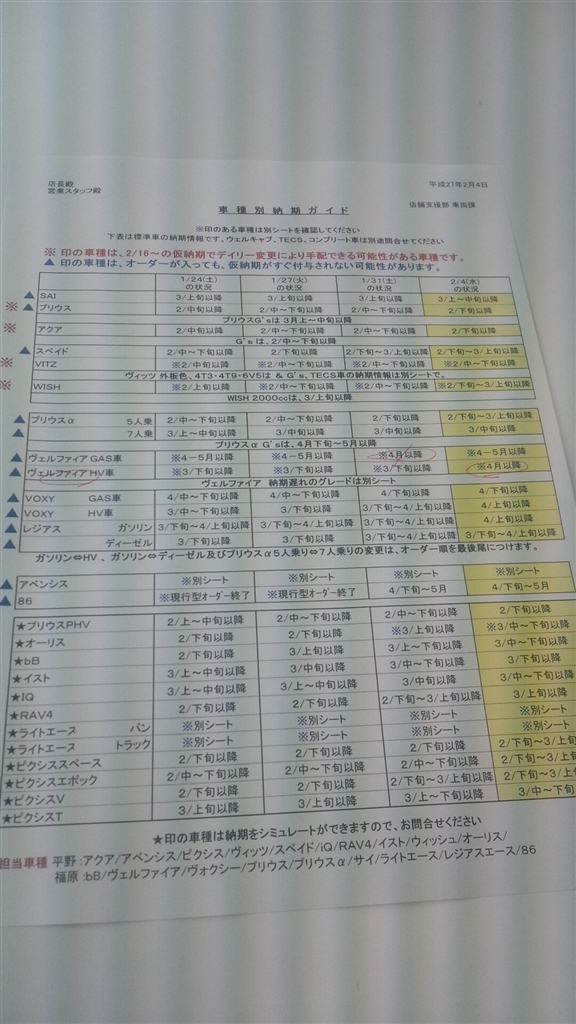 店長殿
営業スタッフ殿
平成27年2月4日
店舗支援部 車両課
車種別納期ガイド
※印のある車種は別シートを確認してください
下表は標準車の納期情報です。ウェルキャブ、TECS、コンプリート車は別途問合せてください
※ 印の車種は、2/16～の仮納期でデイリー変更により手配できる可能性がある車種です。
▲ 印の車種は、オーダーが入っても、仮納期がすぐ付与されない可能性があります。
1/24(土)の状況 1/27(火)の状況 1/31(土)の状況 2/4(水)の状況
▲ SAI 3/上旬以降 3/上旬以降 3/上旬以降 3/上～中旬以降
※ ▲ プリウス 2/中旬以降 2/中～下旬以降 2/中～下旬以降 2/下旬以降
プリウスG'sは3月上～中旬以降
※ アクア 2/中旬以降 2/中～下旬以降 2/中～下旬以降 2/下旬以降
G'sは、2/中～下旬以降
▲ スペイド 2/中～下旬以降 2/下旬以降 2/下旬～3/上旬以降 2/下旬～3/上旬以降
※ VITZ ※2/中旬以降 ※2/中～下旬以降 ※2/中～下旬以降 ※2/中～下旬以降
ヴィッツ 外板色、4T3・4T9・6V5は & G's、TECS車の納期情報は別シートで。
※ WISH ※2/上旬以降 ※2/中～下旬以降 ※2/中～下旬以降 ※2/下旬～3/上旬以降
WISH 2000ccは、3/上旬以降
▲ プリウスα 5人乗 2/中～下旬以降 2/中～下旬以降 2/下旬以降 2/下旬～3/上旬以降
▲ 7人乗 3/上～中旬以降 3/中旬以降 3/中旬以降 3/中旬以降
プリウスα G'sは、4月下旬～5月以降
▲ ヴェルファイア GAS車 ※4－5月以降 ※4－5月以降 ※4月以降 ※4－5月以降
▲ ヴェルファイア HV車 ※3/下旬以降 ※3/下旬以降 ※3/下旬以降 ※4月以降
ヴェルファイア 納期遅れのグレードは別シート
▲ VOXY GAS車 4/中～下旬以降 4/中～下旬以降 4/下旬以降 4/下旬以降
▲ VOXY HV車 3/中～下旬以降 3/下旬以降 3/下旬～4/上旬以降 4/上旬以降
▲ レジアス ガソリン 3/下旬～4/上旬以降 3/下旬～4/上旬以降 3/下旬～4/上旬以降 4/上旬以降
▲ ディーゼル 3/下旬以降 3/下旬以降 3/下旬～4/上旬以降 3/下旬～4/上旬以降
ガソリン⇔HV 、ガソリン⇔ディーゼル及びプリウスα5人乗り⇔7人乗りの変更は、オーダー順を最後尾につけます。
▲ アベンシス ※別シート ※別シート ※別シート ※別シート
▲ 86 ※現行型オーダー終了 ※現行型オーダー終了 4/下旬～5月 4/下旬～5月
★プリウスPHV 2/上～中旬以降 2/中～下旬以降 2/中～下旬以降 2/下旬以降
★オーリス 2/下旬以降 2/下旬以降 ※3/上旬以降 ※3/中～下旬以降
★bB 2/下旬以降 3/上旬以降 3/上～下旬以降 3/中～下旬以降
★イスト 3/上～中旬以降 3/中旬以降 3/中～下旬以降 3/下旬以降
★IQ 3/上～中旬以降 3/上～中旬以降 3/中旬以降 3/中～下旬以降
★RAV4 2/下旬以降 2/下旬以降 2/下旬～3/上旬以降 3/上旬以降
★ライトエース バン ※別シート ※別シート ※別シート ※別シート
★ライトエース トラック ※別シート ※別シート ※別シート ※別シート
★ピクシススペース 2/下旬以降 2/下旬以降 2/下旬以降 2/下旬～3/上
★ピクシスエポック 2/中～下旬以降 2/中～下旬以降 2/中～下旬以降 2/下旬～3/上
★ピクシスV 2/下旬以降 2/下旬以降 2/下旬～3/上旬以降 2/下旬～3/上
★ピクシスT 3/上旬以降 3/上旬以降 3/上～下旬以降 3/中～下旬
★印の車種は納期をシミュレートができますので、お問合せください
担当車種 平野：アクア/アベンシス/ピクシス/ヴィッツ/スペイド/iQ/RAV4/イスト/ウィッシュ/オーリス/
福原：bB/ヴェルファイア/ヴォクシー/プリウス/プリウスα/サイ/ライトエース/レジアスエース/86